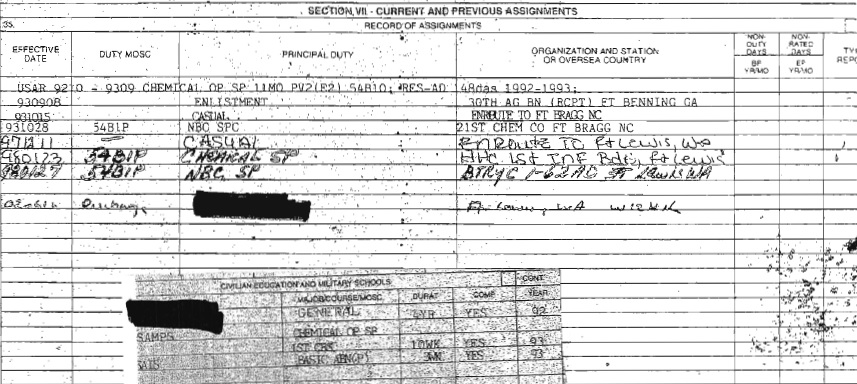 SECTION VII - CURRENT AND PREVIOUS ASSIGNMENTS
35. RECORD OF ASSIGNMENTS
EFFECTIVE DATE DUTY MOSC PRINCIPAL DUTY ORGANIZATION AND STATION OR OVERSEA COUNTRY NON-DUTY DAYS BP YR/MO NON-RATED DAYS EP YR/MO
USAR 9210 - 9309 CHEMICAL OP SP 11MO PV2(E2) 54B10; RES-AD 148das 1992-1993;
930908 ENLISTMENT 30TH AG BN (RCPT) FT BENNING GA
931015 CASUAL ENROUTE TO FT BRAGG NC
931028 54B1P NBC SPC 21ST CHEM CO FT BRAGG NC
971211 CASUAL ENROUTE TO Ft Lewis, WA
980123 54B1P CHEMICAL SP HHC 1st INF Ft Lewis
980127 54B1P NBC SP BTRY C 1-62 AD Ft Lewis WA
Discharge WA
CIVILIAN EDUCATION AND MILITARY SCHOOLS
MAJOR/COURSE/MOSC DURAT COMP YEAR
GENERAL 4YR YES 92
SAMPS CHEMICAL OP SP
1ST 10WK YES 93
BASIC ABN(P) 3WK YES 93